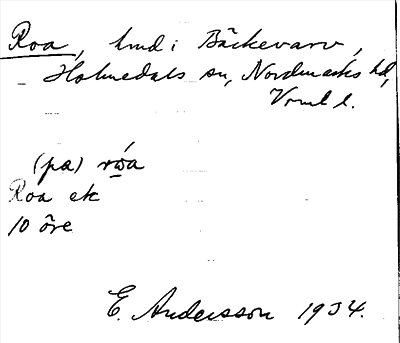 Roa, hmd i Bäckevarv,
Holmedals sn, Nordmarks hd,
Vrml l.
(pa) rωa
Roa ek
10 öre
E. Andersson 1934.